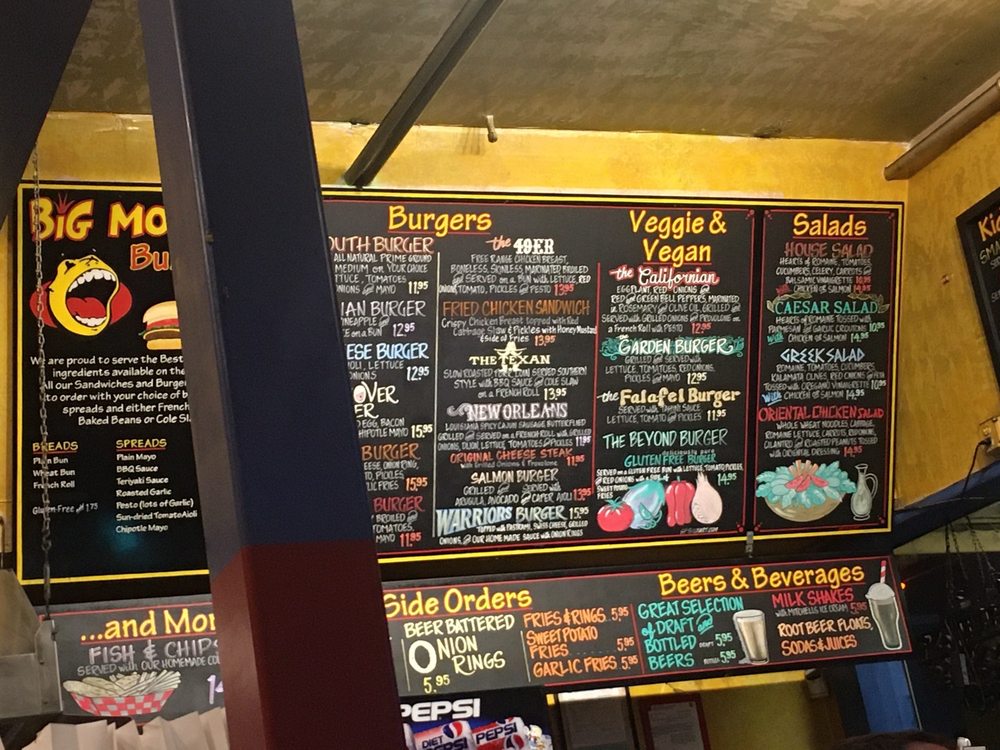 BiG MO
Bu
We are proud to serve the Best
ingredients available on the
All our Sandwiches and Burge
to order with your choice of b
spreads and either French
Baked Beans or Cole Sl
BREADS
Plain Bun
Wheat Bun
French Roll
Gluten-Free 1.75
SPREADS
Plain Mayo
BBQ Sauce
Teriyaki Sauce
Roasted Garlic
Pesto (lots of Garlic)
Sun-dried Tomato Aioli
Chipotle Mayo
Burgers
OUTH BURGER
ALL NATURAL PRIME GROUND
MEDIUM OR YOUR CHOICE
TTUCE, TOMATOES,
NIONS AND MAYO 11.95
IAN BURGER
INEAPPLE &
E ON A BUN 12.95
ESE BURGER
IOLI, LETTUCE
ONIONS 12.95
OVER
ER
EGG, BACON
HIPOTLE MAYO 15.95
BURGER
EESE, ONION RING,
TO, PICKLES,
IC FRIES 15.95
BURGER
BROILED &
TOMATOES,
MAYO 11.95
the 49ER
FREE RANGE CHICKEN BREAST,
BONELESS, SKINLESS, MARINATED BROILED
AND SERVED ON A BUN WITH LETTUCE, RED
ONIONS, TOMATO, PICKLES AND PESTO 13.95
FRIED CHICKEN SANDWICH
Crispy Chicken Breast topped with Red
Cabbage Slaw & Pickles with Honey Mustard
& side of Fries 13.95
THE TEXAN
SLOW ROASTED PORK LOIN SERVED SOUTHERN
STYLE WITH BBQ SAUCE AND COLE SLAW
ON A FRENCH ROLL 13.95
NEW ORLEANS
LOUISIANA SPICY CAJUN SAUSAGE BUTTERFLIED
GRILLED AND SERVED ON A FRENCH ROLL WITH GRILLED
ONIONS, DIJON, LETTUCE, TOMATOES & PICKLES 11.95
ORIGINAL CHEESE STEAK
with Grilled Onions & Provolone 11.95
SALMON BURGER
GRILLED AND SERVED WITH
ARUGULA, AVOCADO AND CAPER AIOLI 13.95
WARRIORS BURGER 15.95
TOPPED WITH PASTRAMI, SWISS CHEESE, GRILLED
ONIONS, AND OUR HOME MADE SAUCE WITH ONION RINGS
Veggie &
Vegan
the Californian
EGGPLANT, RED ONIONS AND
RED AND GREEN BELL PEPPERS, MARINATED
IN ROSEMARY AND OLIVE OIL, GRILLED AND
SERVED WITH GRILLED ONIONS & PROVOLONE ON
A FRENCH ROLL WITH PESTO 12.95
GARDEN BURGER
GRILLED AND SERVED WITH
LETTUCE, TOMATOES, RED ONIONS,
PICKLES AND MAYO 12.95
the Falafel Burger
SERVED WITH TAHINI SAUCE
LETTUCE, TOMATO & PICKLES 11.95
THE BEYOND BURGER
deliciously pure
GLUTEN FREE BURGER
SERVED ON A GLUTEN FREE BUN WITH LETTUCE, TOMATO, PICKLES,
AND RED ONIONS WITH A SIDE OF 14.95
SWEET POTATO
FRIES
Salads
HOUSE SALAD
HEARTS OF ROMAINE, TOMATOES,
CUCUMBERS, CELERY, CARROTS AND
BALSAMIC VINAIGRETTE 10.95
CHICKEN OR SALMON 14.95
CAESAR SALAD
HEARTS OF ROMAINE TOSSED WITH
PARMESAN AND GARLIC CROUTONS 10.95
With CHICKEN OR SALMON 14.95
GREEK SALAD
ROMAINE, TOMATOES, CUCUMBERS,
KALAMATA OLIVES, RED ONIONS AND FETA
TOSSED WITH OREGANO VINAIGRETTE 10.95
With CHICKEN OR SALMON 14.95
ORIENTAL CHICKEN SALAD
WHOLE WHEAT NOODLES, CABBAGE,
ROMAINE LETTUCE, CARROTS, RED ONIONS,
CILANTRO AND ROASTED PEANUTS TOSSED
WITH ORIENTAL DRESSING 14.95
Ki
...and Mor
FISH & CHIPS
SERVED WITH OUR HOMEMADE CO
Side Orders
BEER BATTERED
ONION
RINGS
5.95
FRIES & RINGS 5.95
SWEET POTATO
FRIES 5.95
GARLIC FRIES 5.95
Beers & Beverages
GREAT SELECTION
of DRAFT and
BOTTLED DRAFT 5.95
BEERS BOTTLED 5.95
MILK SHAKES
WITH MITCHELLS ICE CREAM 5.95
ROOT BEER FLOATS,
SODAS & JUICES
PEPSI
DIET
PEPSI
PEPSI